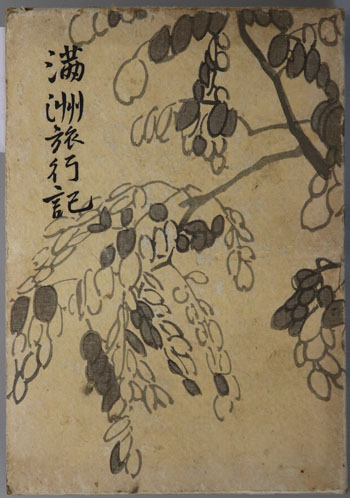 满洲旅行記